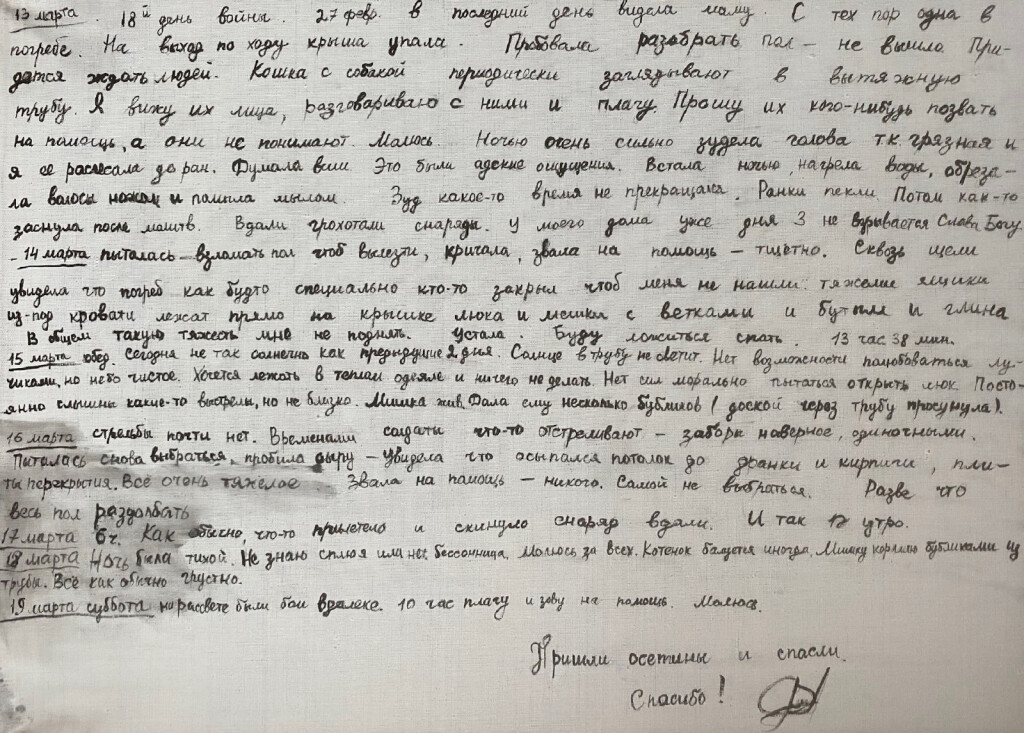 13 марта 18й день войны. 27 февр. в последний день видела маму. С тех пор одна в
погребе. На выход по ходу крыша упала. Пробовала разобрать пол – не вышло При-
дется ждать людей. Кошка с собакой периодически заглядывают в вытяжную
трубу. Я вижу их лица, разговариваю с ними и плачу. Прошу их кого-нибудь позвать
на помощь, а они не понимают. Молюсь. Ночью очень сильно зудела голова т.к. грязная и
я ее расчесала до ран. Думала вши Это были адские ощущения. Встала ночью, нагрела воды, обреза-
ла волосы ножом и помыла мылом. Зуд какое-то время не прекращался. Ранки пекли. Потом как-то
заснула после молитв. Вдали грохотали снаряды. У моего дома уже дня 3 не взрывается Слава Богу.
- 14 марта пыталась взломать пол чтоб вылезти, кричала, звала на помощь – тщетно. Сквозь щели
увидела что погреб как будто специально кто-то закрыл чтоб меня не нашли: тяжелые ящики
из-под кровати лежат прямо на крышке люка и мешки с ветками и бутыля и глина
В общем такую тяжесть мне не поднять. Устала. Буду ложиться спать. 13 час 38 мин.
15 марта обед. Сегодня не так солнечно как предидущие 2 дня. Солнце в трубу не светит. Нет возможности полюбоваться лу-
чиками, но небо чистое. Хочется лежать в теплом одеяле и ничего не делать. Нет сил морально пытаться открыть люк. Посто-
янно слышны какие-то выстрелы, но не близко. Мишка жив. Дала ему несколько бубликов (доской через трубу просунула).
16 марта стрельбы почти нет. Временами солдаты что-то отстреливают – заборы наверное, одиночными.
Пыталась снова выбраться, пробила дыру – увидела что осыпался потолок до дранки и кирпичи, пли-
ты перекрытия. Всё очень тяжелое. Звала на помощь – никого. Самой не выбраться. Разве что
весь пол раздолбать
17 марта 6ч. Как обычно, что-то прилетело и скинуло снаряд вдали. И так утро.
18 марта Ночь была тихой. Не знаю сплю я или нет бессонница. Молюсь за всех. Котенок балуется иногда, Мишку кормлю бубликами из
трубы. Всё как обычно грустно.
19 марта суббота на рассвете были бои вдалеке. 10 час плачу и зову на помощь. Молюсь.
Пришли осетины и спасли.
Спасибо!